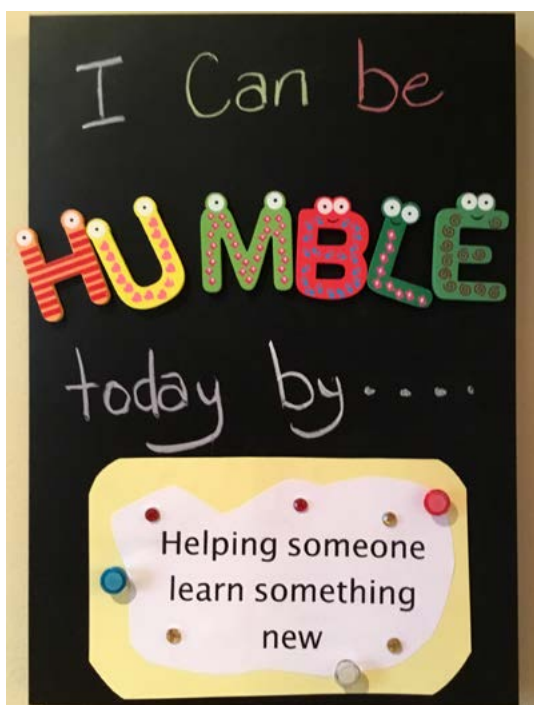 I Can be
HUMBLE
today by....
Helping someone
learn something
new